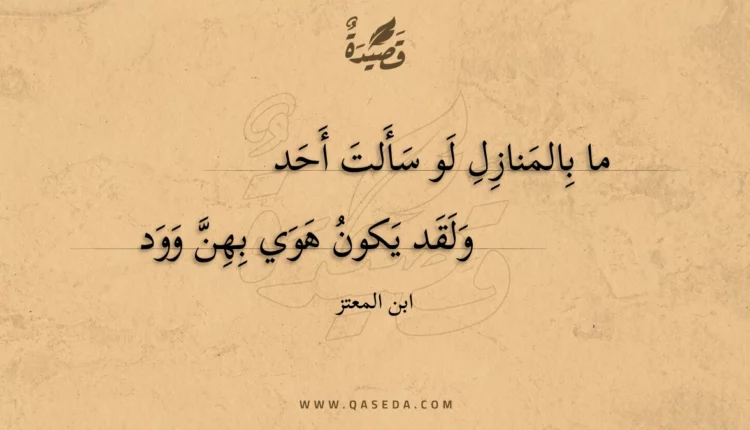 قَصِيدَةٌ
ما بِالمَنازِلِ لَو سَأَلتَ أَحَد
وَلَقَد يَكونُ هَوَي بِهِنَّ وَوَد
ابن المعتز
WWW.QASEDA.COM